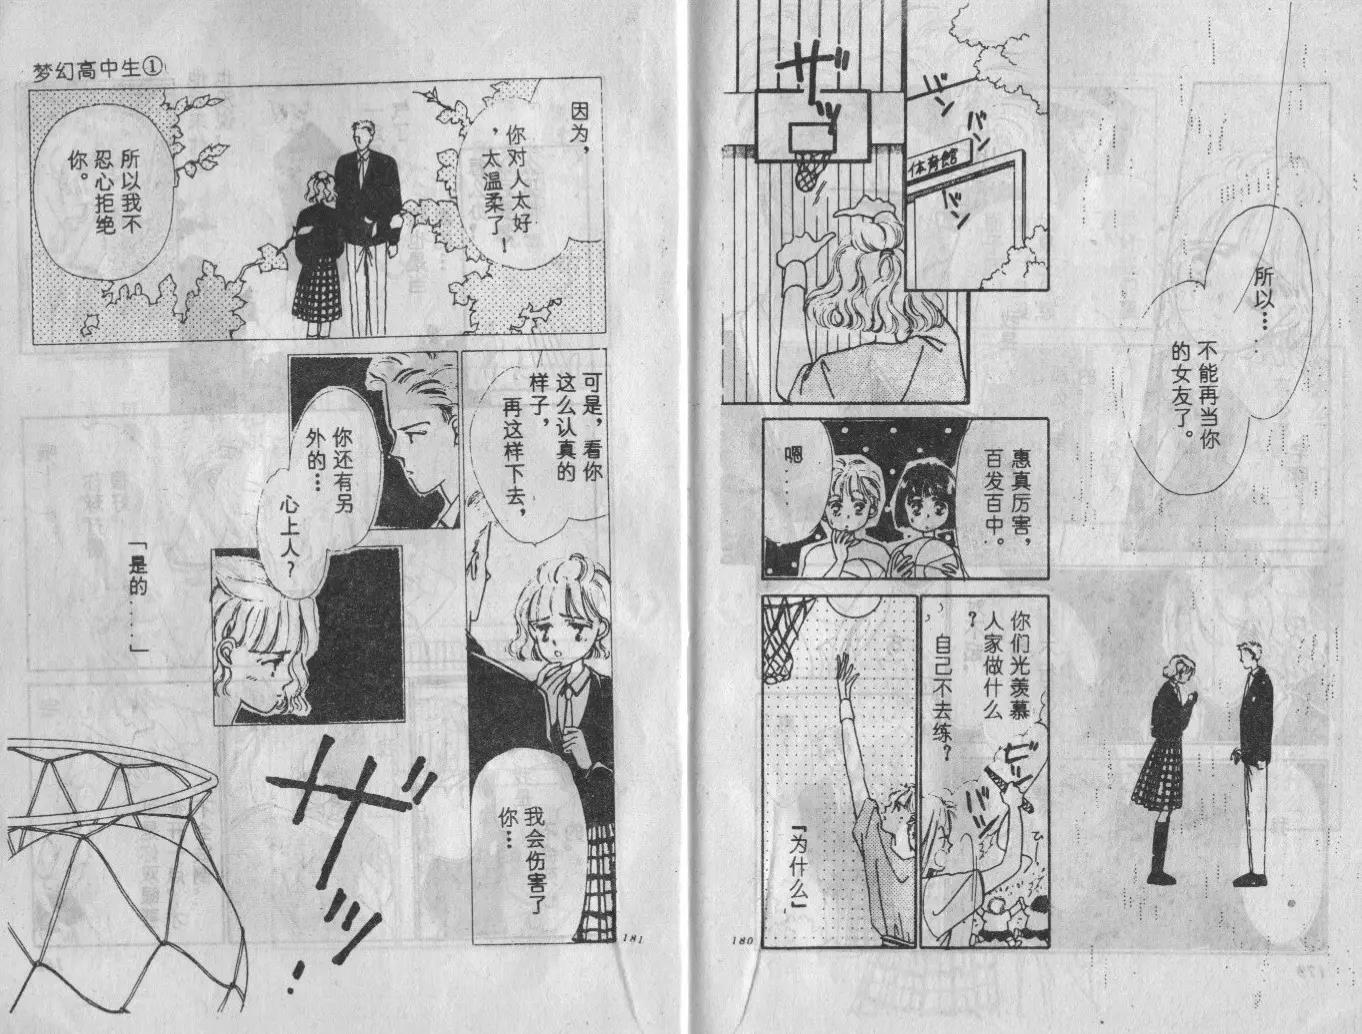 所以…
不能再当你
的女友了。
バン
バン
体育館
バン
ザッ
惠真厉害，
百发百中。
嗯
……
你们光羡慕
人家做什么
？
自己不去练？
ピッ
バッ
『为什么』
180
梦幻高中生①
因为，
你对人太好
，太温柔了！
所以我不
忍心拒绝
你。
可是，看你
这么认真的
样子，
再这样下去，
我会伤害了
你…
你还有另
外的…
心上人？
「是的……」
ザッ
181